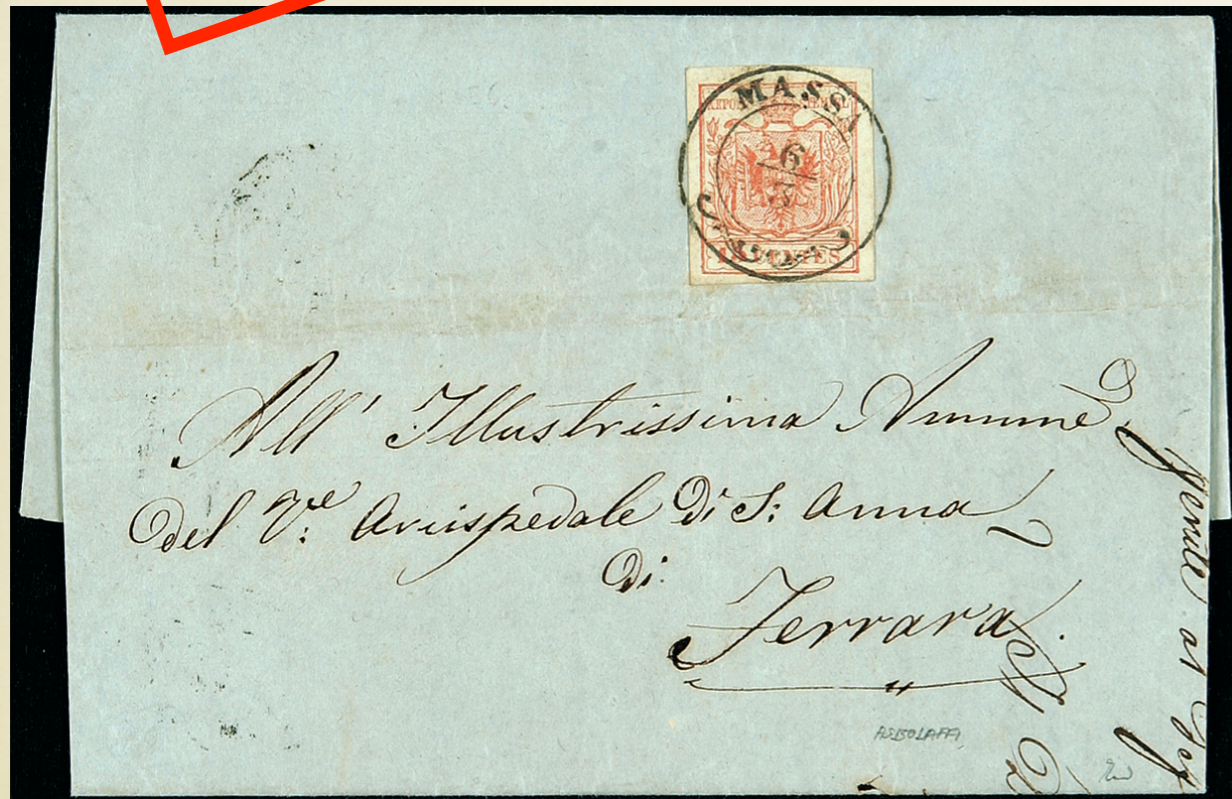 MASSA
6
15 CENTES
All' Illustrissima Ammne
del V.e Arcispedale Di S: Anna
Di:
Ferrara